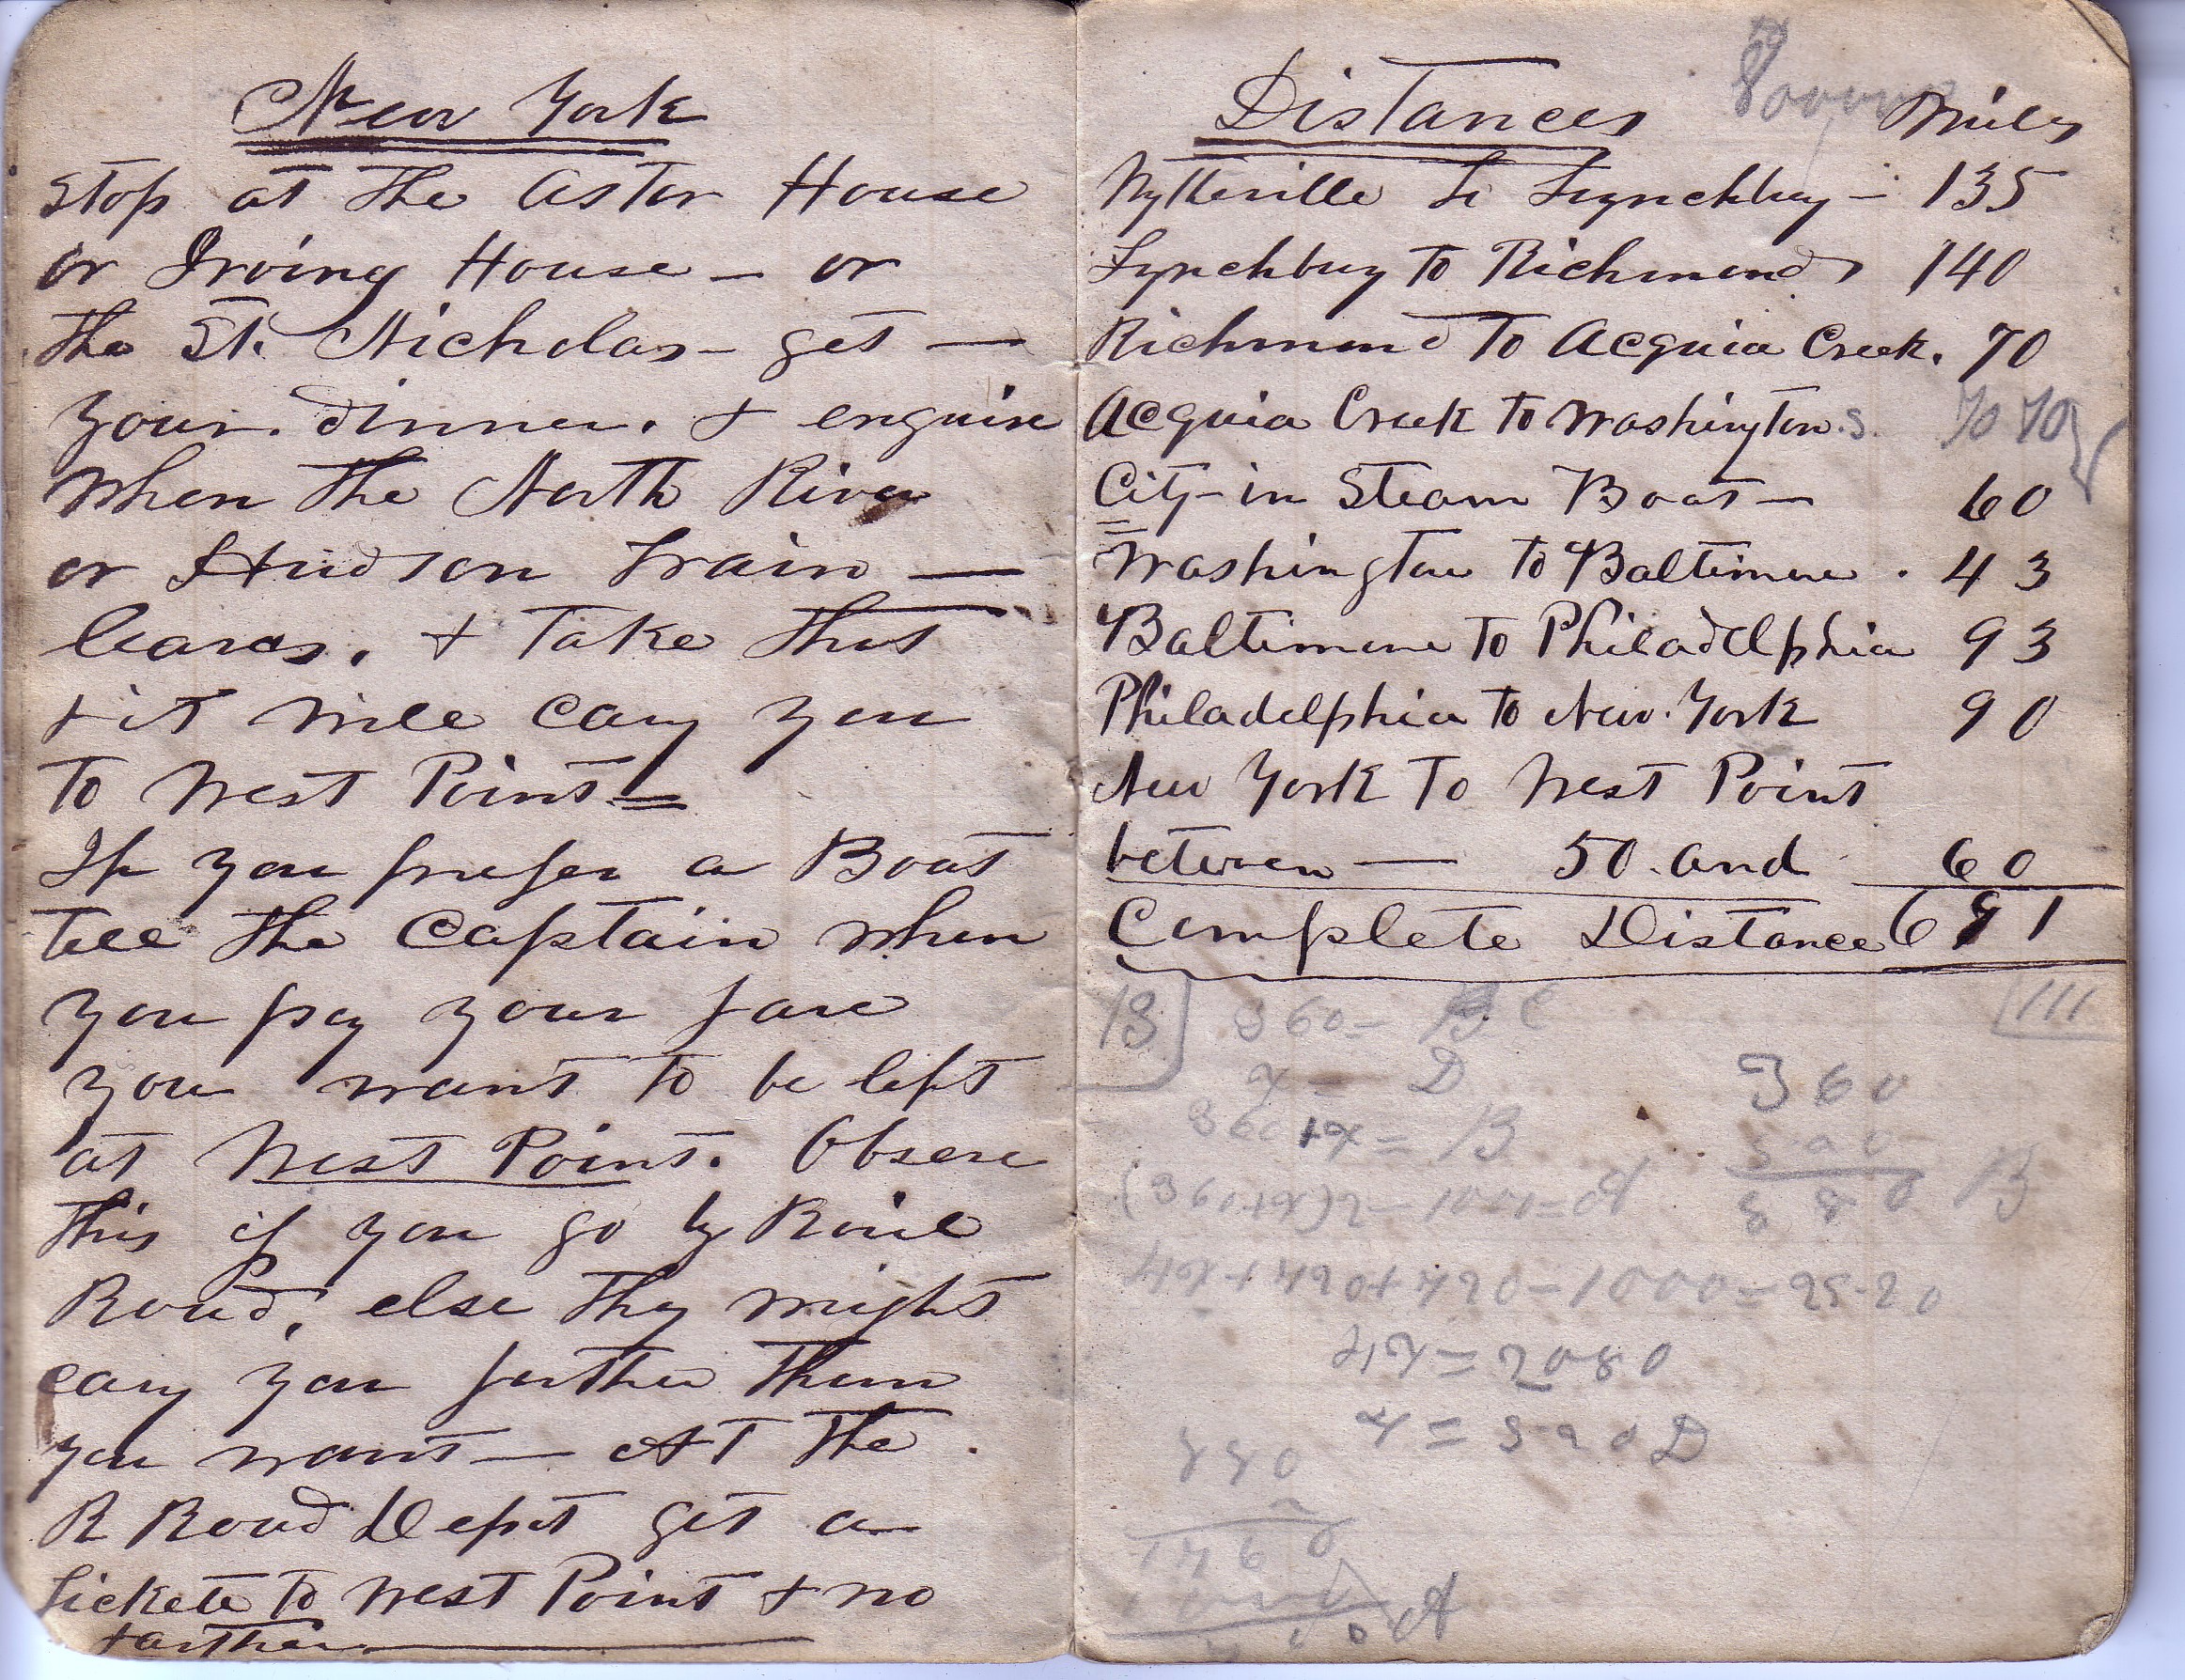 New York
Stop at the Astor House
or Irving House – or
the St. Nicholas – get —
your dinner. & enquire
when the North River
or Hudson Train —
leaves. & take that
& it will cary you
to West Point =
If you prefer a Boat
tell the Captain when
you pay your fare
you want to be left
at West Point. Observe
this if you go by Rail
Road, else they might
cary you further than
you want — At the
R Road Depot get a
Tickete to West Point & no
farther
Distances Miles
Wytheville to Lynchburg – 135
Lynchburg to Richmond 140
Richmond to Acquia Creek. 70
Acquia Creek to Washington 70 70
City – in Steam Boat — 60
Washington to Baltimore . 43
Baltimore to Philadelphia 93
Philadelphia to New York 90
New York to West Point
between — 50 and 60
Complete Distance 691
13 360 = 111
x = D 360
360 + x = B
4x = 2080
x = 520 D
A